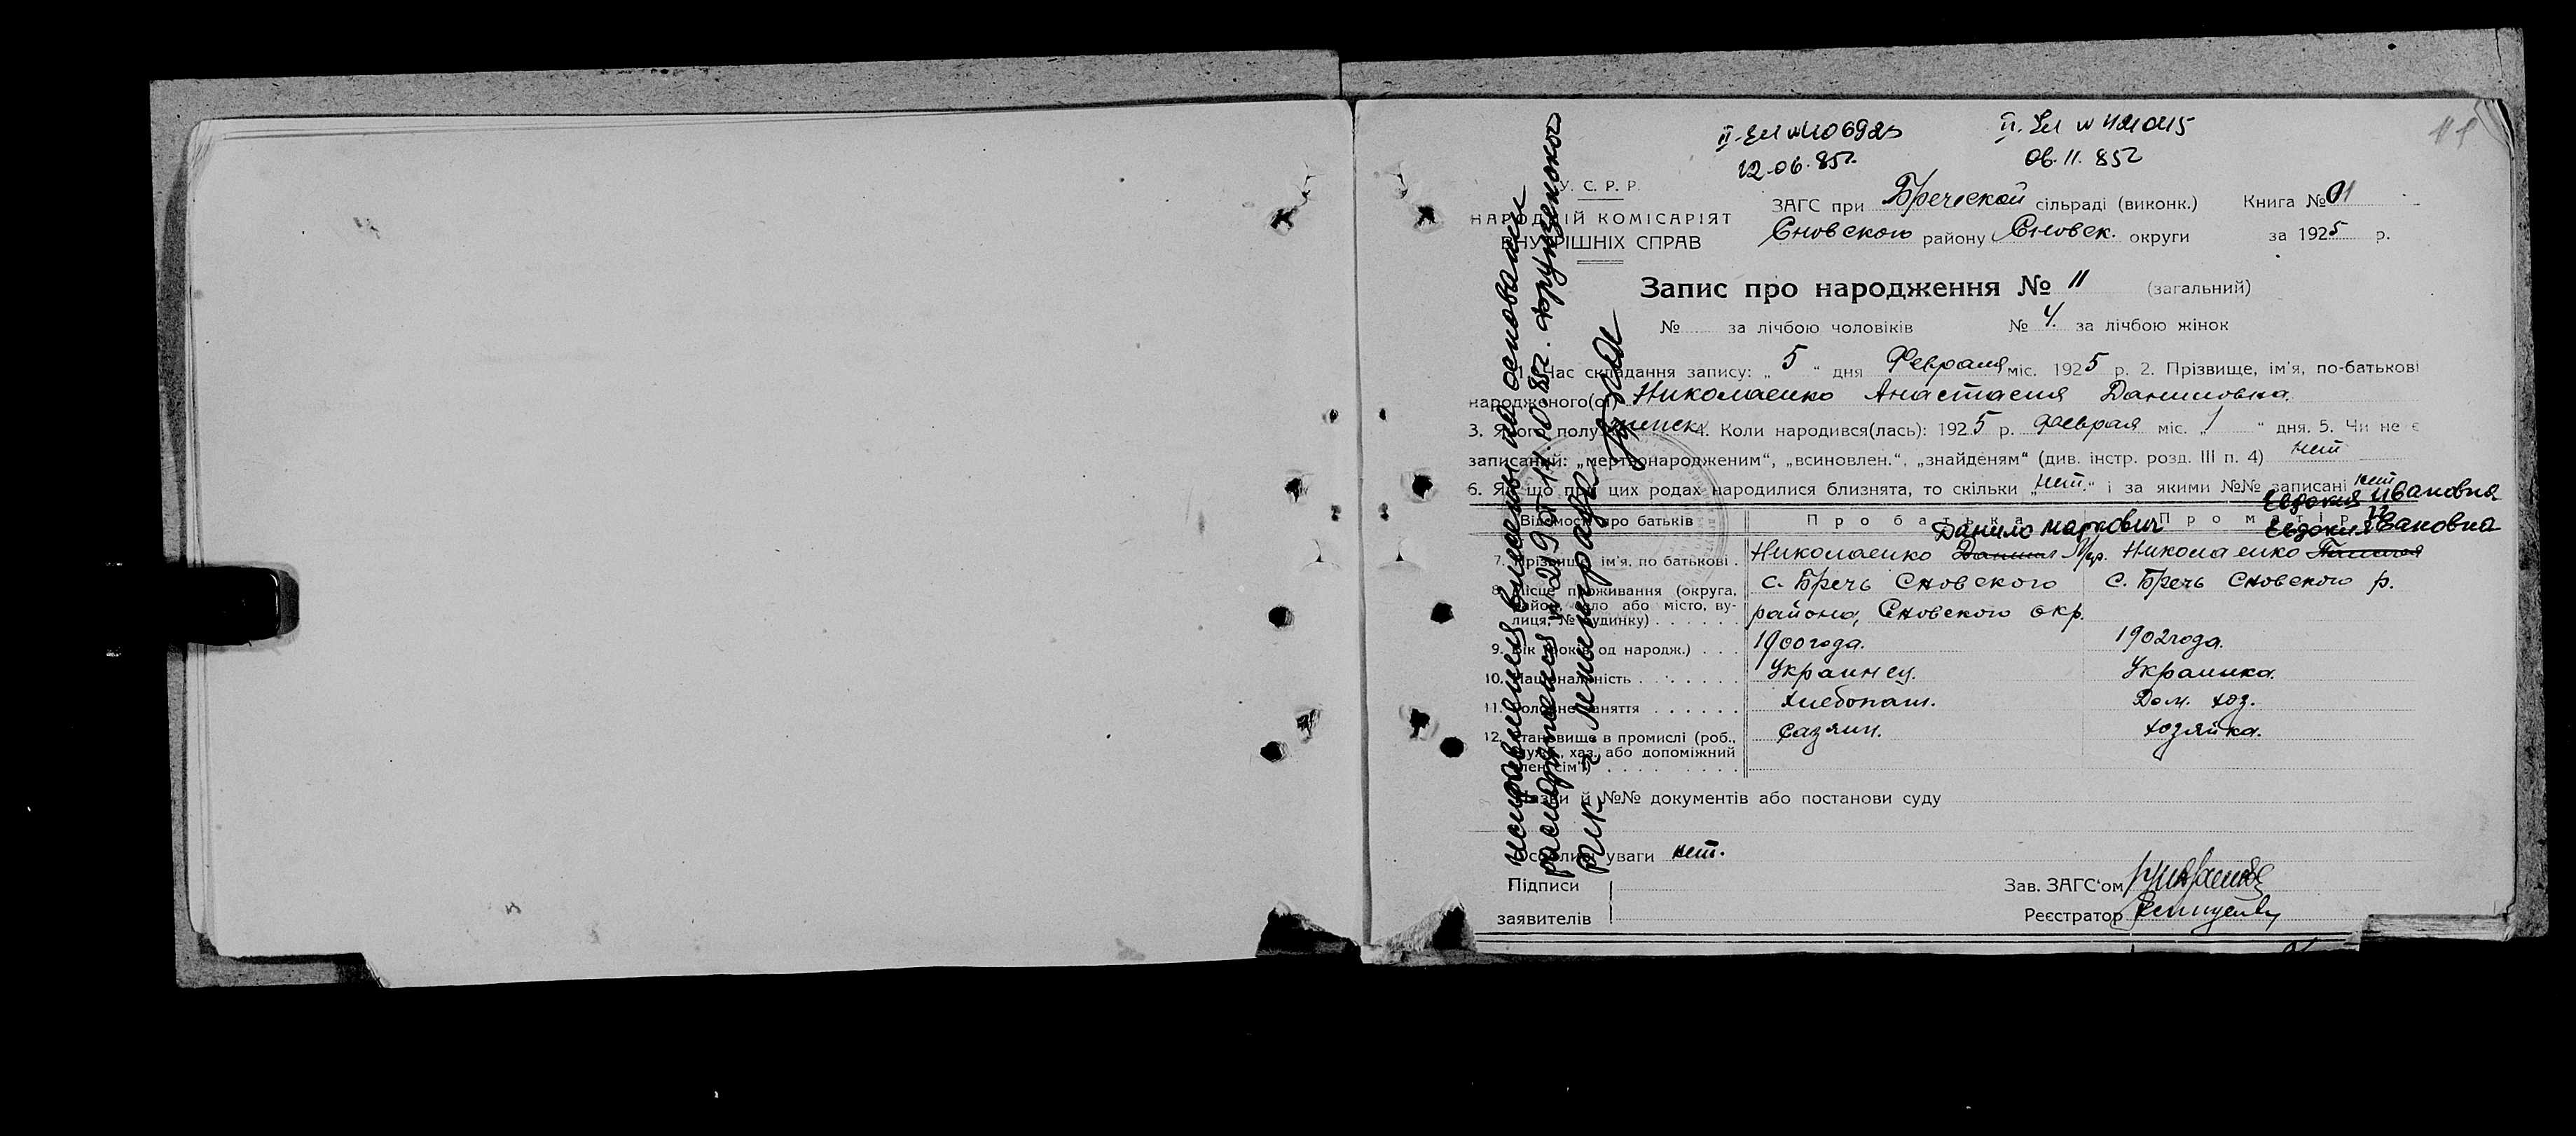 II-ЕЛ № 406925
12.06.85г.
II. ЕЛ № 421045
06.11.85г
У. С. Р. Р.
НАРОДНІЙ КОМІСАРІЯТ
ВНУТРІШНІХ СПРАВ
ЗАГС при Бреческой сільраді (виконк.) Книга № 01
Сновского району Сновск. округи за 1925 р.
Запис про народження № 11 (загальний)
№ за лічбою чоловіків № 4. за лічбою жінок
1. Час складання запису: „ 5 “ дня Февраля міс. 1925 р. 2. Прізвище, ім'я, по-батькові
народженого(ої) Николаенко Анастасия Даниловна.
3. Якого полу женск 4. Коли народився(лась): 1925 р. Февраля міс. „ 1 “ дня. 5. Чи не є
записаний: „мертвонародженим“, „всиновлен.“, „знайденям“ (див. інстр. розд. III п. 4) нет
6. Якщо при цих родах народилися близнята, то скільки „нет.“ і за якими №№ записані нет
Евдокия Ивановна
Відомості про батьків Про батька Про матір
Данило Маркович Евдокия Ивановна
7. Прізвище, ім'я, по батькові . Николаенко Данил Мар. Николаенко
8. Місце проживання (округа, с. Бречь Сновского с. Бречь Сновского р.
район, село або місто, ву-
лиця, № будинку) . . . . . . района, Сновского окр.
9. Вік (років од народж.) . . . 1900 года. 1902 года.
10. Національність . . . . . . . Украинец. Украинка.
11. Головне заняття . . . . . . Хлебопаш. Дом. хоз.
12. Становище в промислі (роб., хазяин. хозяйка.
служ., хаз., або допоміжний
член сім'ї) . . . . . . . . .
Назви й №№ документів або постанови суду
Особливі уваги нет.
Підписи
заявителів
Зав. ЗАГС'ом
Реєстратор
исправления внесены на основании
распоряжения № 2995 от 11.10.82г. Фрунзенского
РИК г. Ленинграда